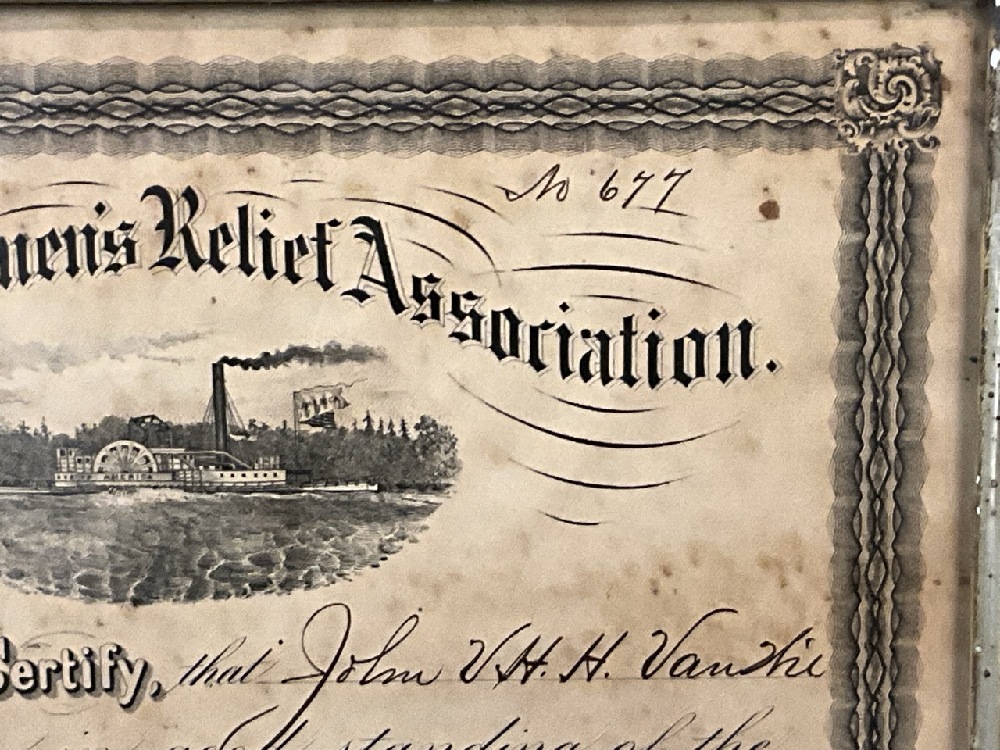 No 677
men's Relief Association.
AMERICA
Certify, that John V.H. H. Vanzhie
standing of the